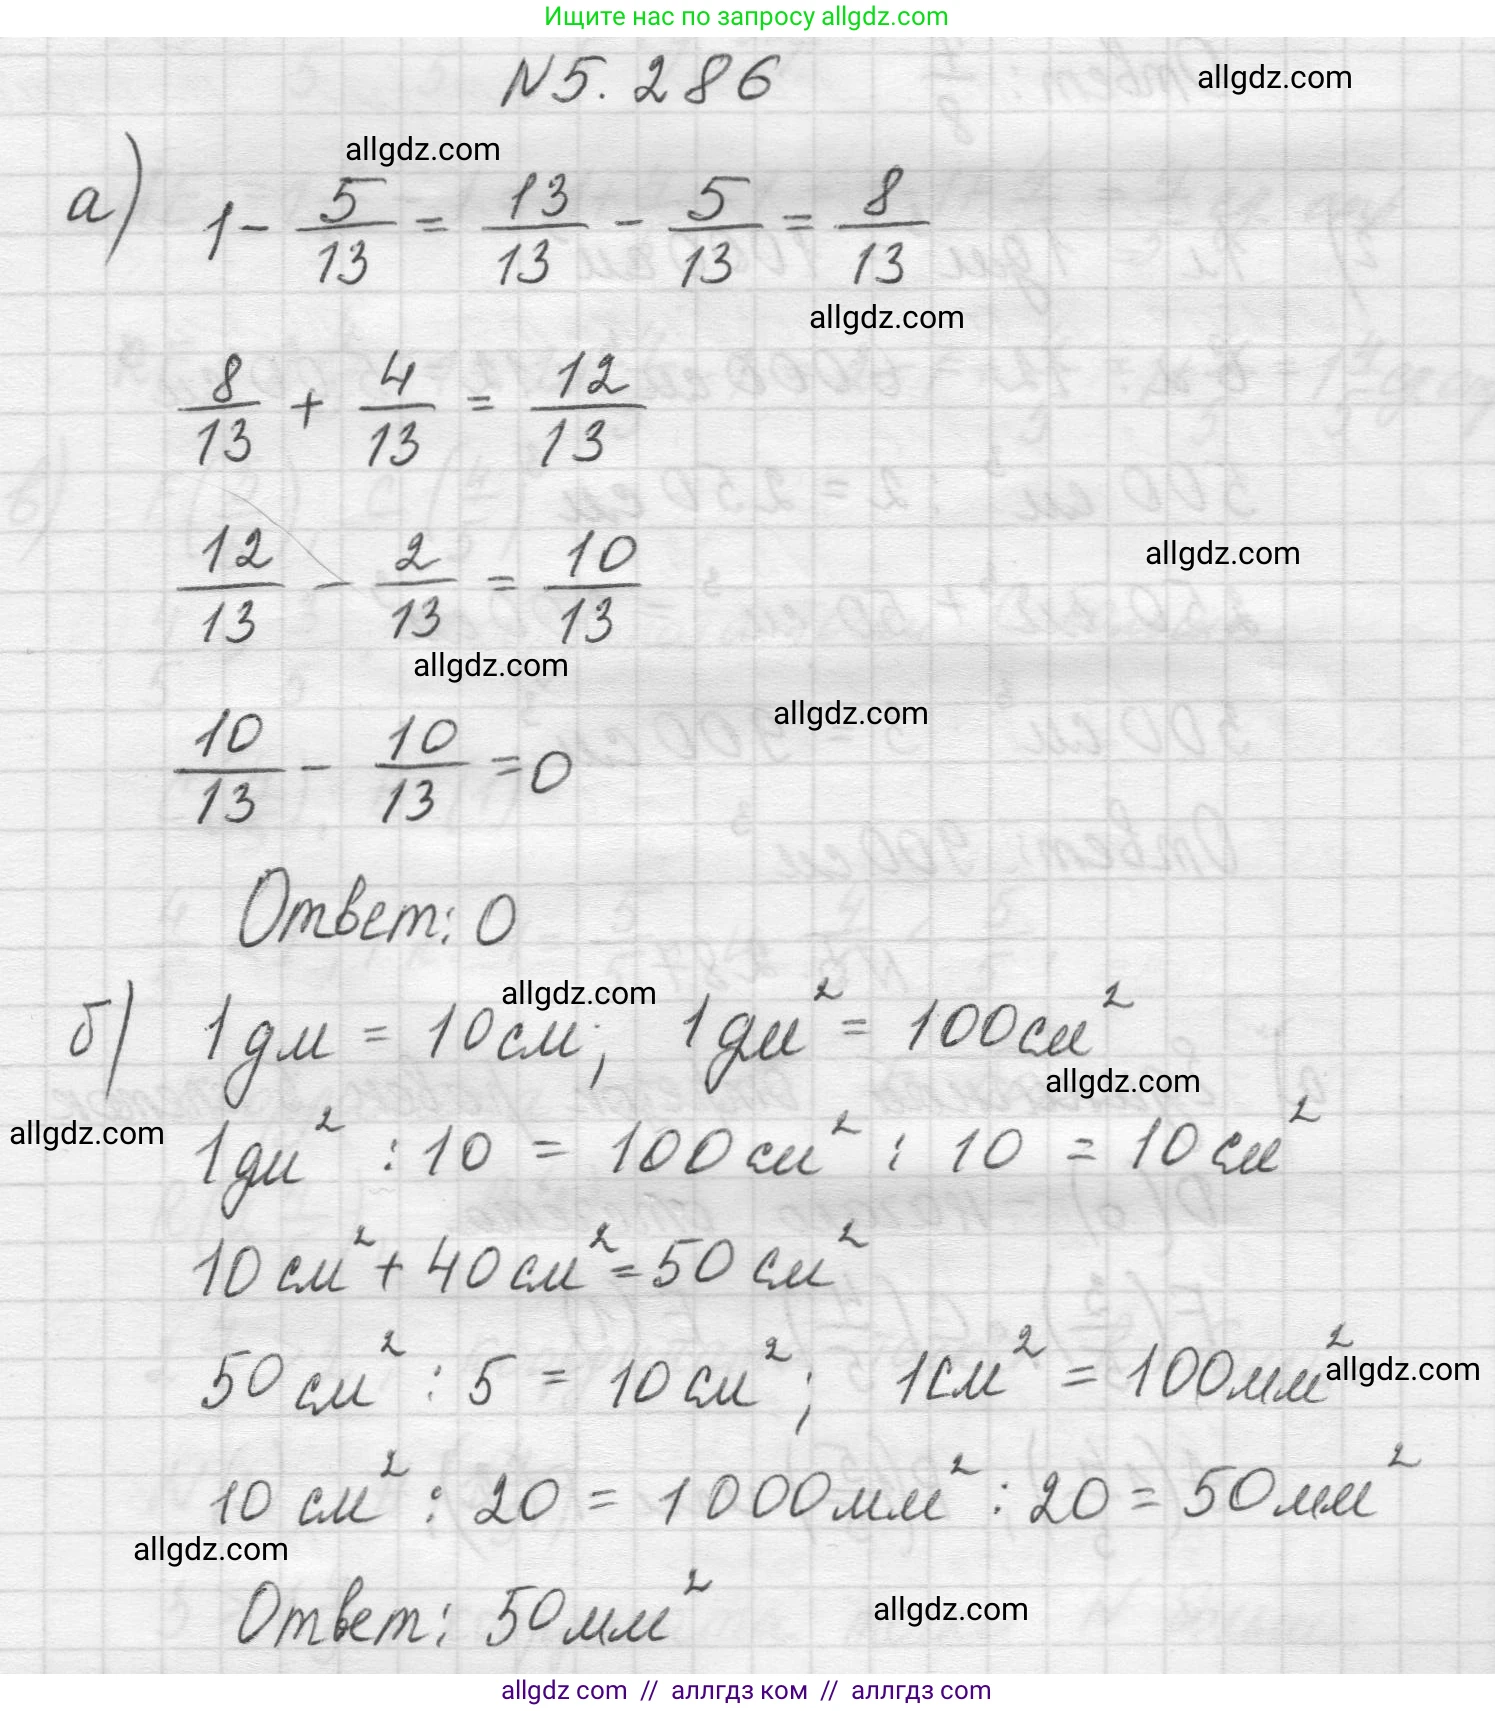 Ищите нас по запросу allgdz.com
N5.286
allgdz.com
allgdz.com
а) 1 - 5/13 = 13/13 - 5/13 = 8/13
allgdz.com
8/13 + 4/13 = 12/13
12/13 - 2/13 = 10/13
allgdz.com
allgdz.com
allgdz.com
10/13 - 10/13 = 0
Ответ: 0
allgdz.com
б) 1дм = 10см; 1дм² = 100см²
allgdz.com
allgdz.com
1дм² : 10 = 100см² : 10 = 10см²
10см² + 40см² = 50см²
50см² : 5 = 10см²; 1см² = 100мм²
allgdz.com
10см² : 20 = 1000мм² : 20 = 50мм²
allgdz.com
Ответ: 50мм²
allgdz.com
allgdz com // аллгдз ком // аллгдз com